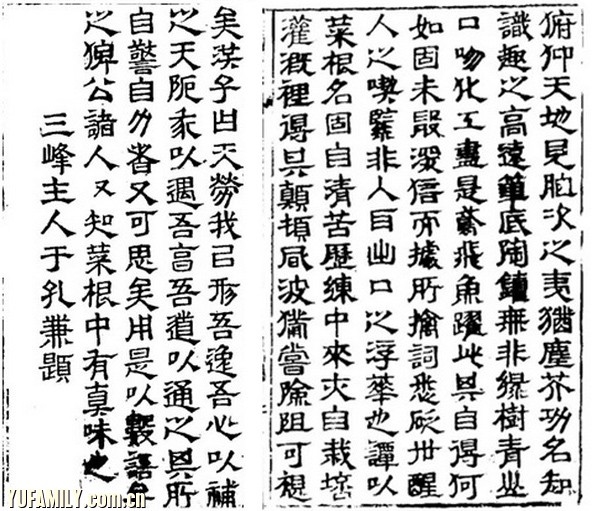 俯仰天地見胸次之夷猶塵芥功名知
識趣之高遠筆底陶鑄無非綠樹青山
口吻化工盡是鳶飛魚躍此其自得何
如固未能深信而據所擒詞悉砭世醒
人之喫緊非入耳出口之浮華也譚以
菜根名固自清苦歷練中來亦自栽培
灌漑裡得其顛頓風波備嘗險阻可想
矣洪子曰天勞我以形吾逸吾心以補
之天阨我以遇吾高吾道以通之其所
自警自力者又可思矣用是以數語弁
之俾公諸人人知菜根中有真味也
三峰主人于孔兼題
YUFAMILY.com.cn